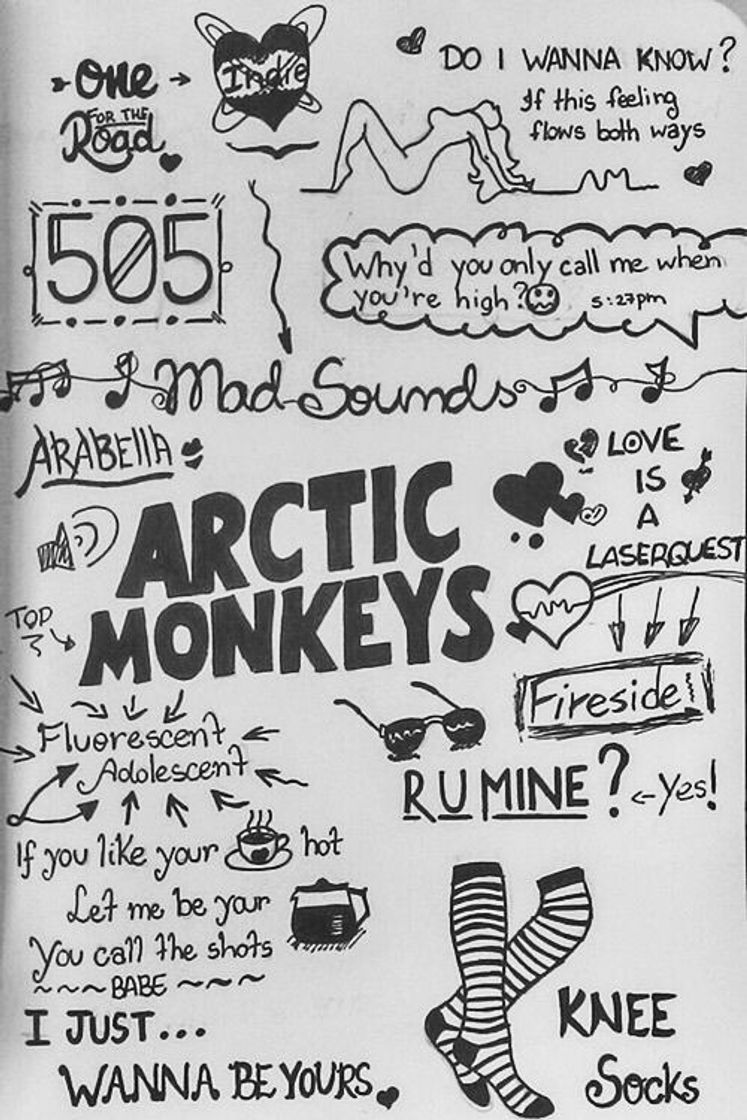 One
FOR THE
Road
Indie
DO I WANNA KNOW?
If this feeling
flows both ways
505
Why'd you only call me when
you're high? 5:27pm
Mad Sounds
ARABEllA
LOVE
IS
A
LASERQUEST
ARCTIC
MONKEYS
TOP
Fireside
Fluorescent
Adolescent
R U MINE? ←Yes!
If you like your hot
Let me be your
You call the shots
~~~BABE ~~~
I JUST...
WANNA BE YOURS
KNEE
Socks